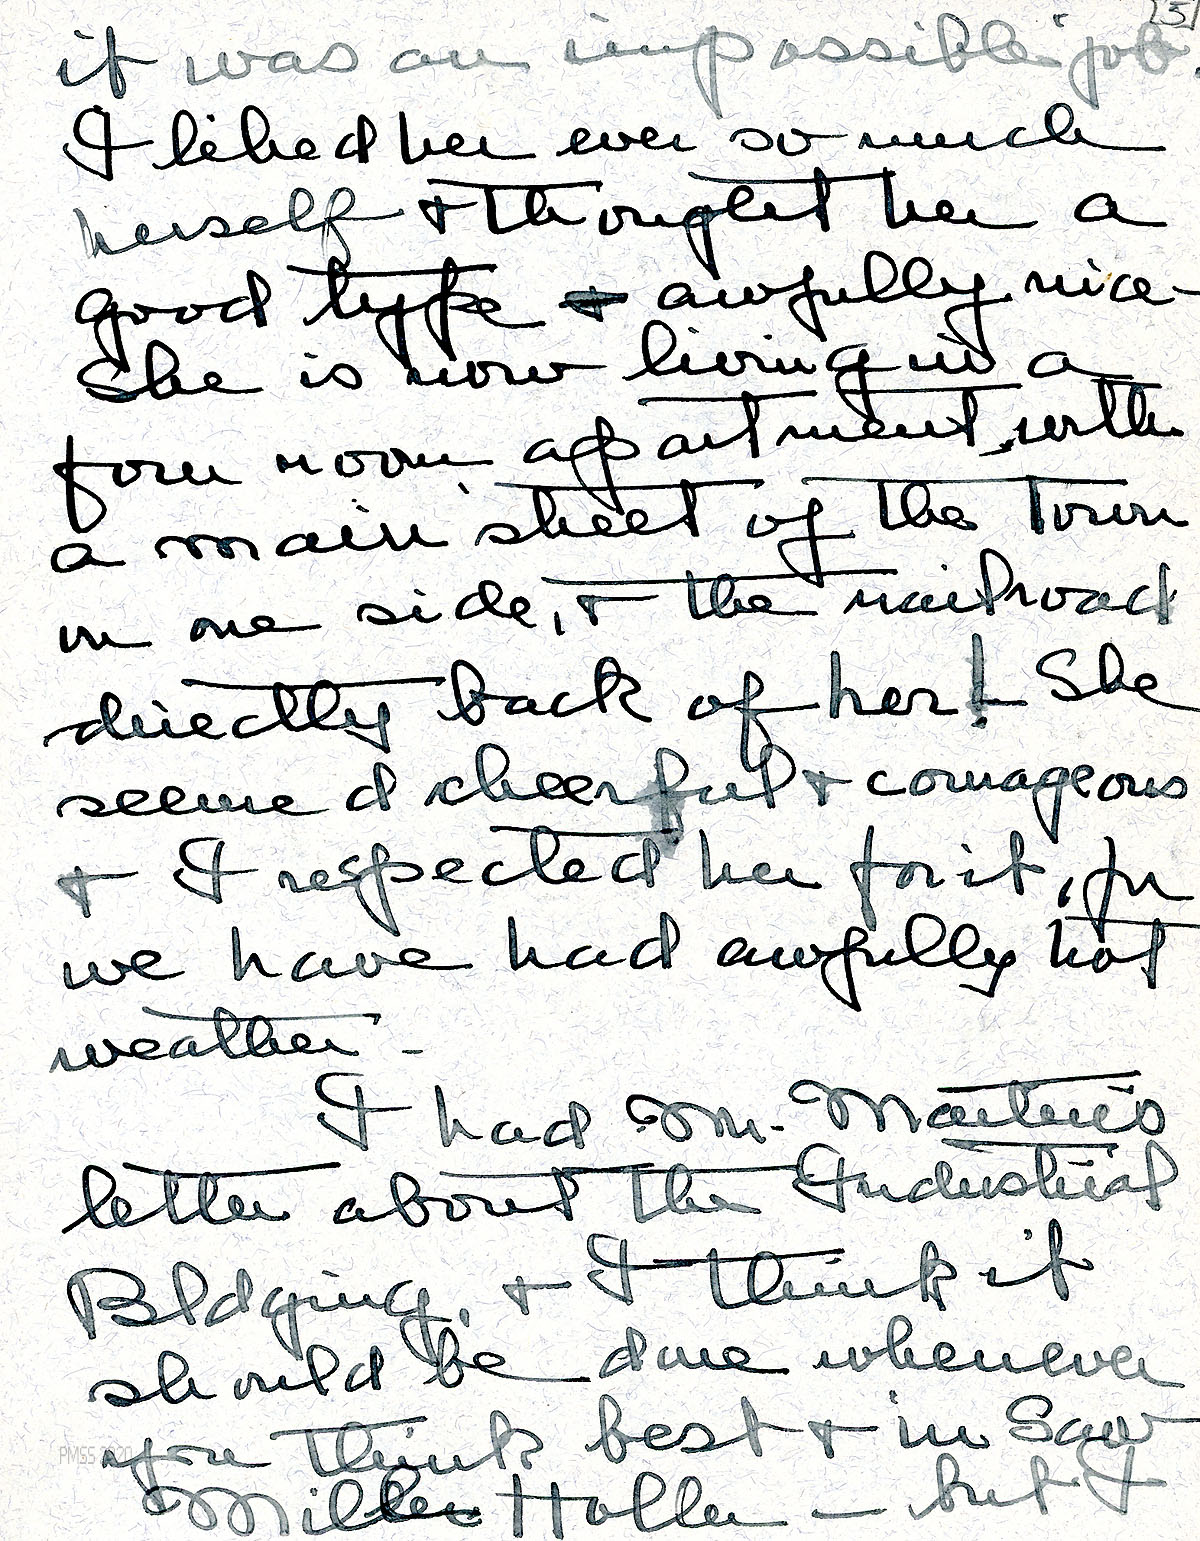 5
it was an impossible job.
I liked her ever so much
herself & thought her a
good type & awfully nice -
She is now living in a
four room apartment, with
a main street of the town
on one side, & the railroad
directly back of her! She
seemed cheerful & courageous
& I respected her for it, for
we have had awfully hot
weather -
I had Mr. Martin's
letter about the Industrial
Bldging, & I think it
should be done whenever
you think best & in Saw
Mill Holler - but I
PMSS 2020